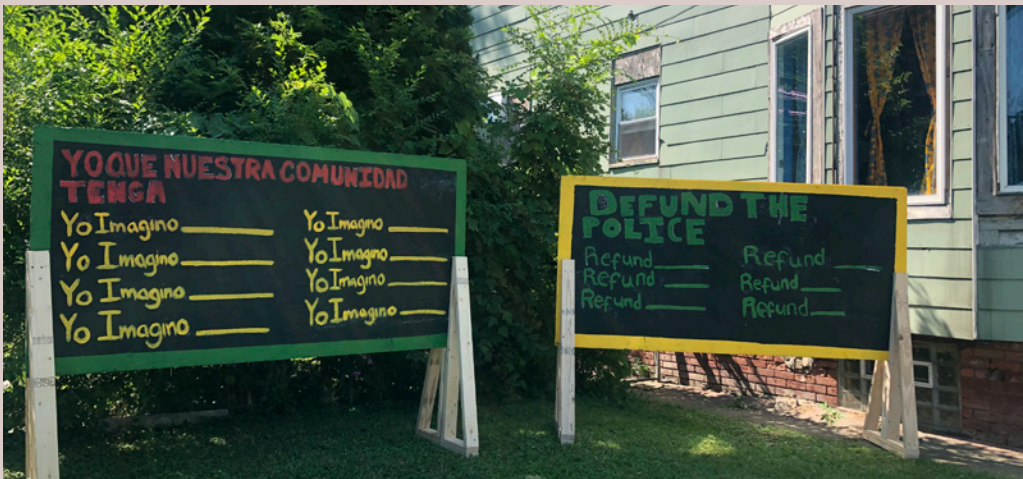 YO QUE NUESTRA COMUNIDAD
TENGA
Yo Imagino ____
Yo Imagino ____
Yo Imagino ____
Yo Imagino ____
Yo Imagino ____
Yo Imagino ____
Yo Imagino ____
Yo Imagino ____
DEFUND THE
POLICE
Refund ____
Refund ____
Refund ____
Refund ____
Refund ____
Refund ____